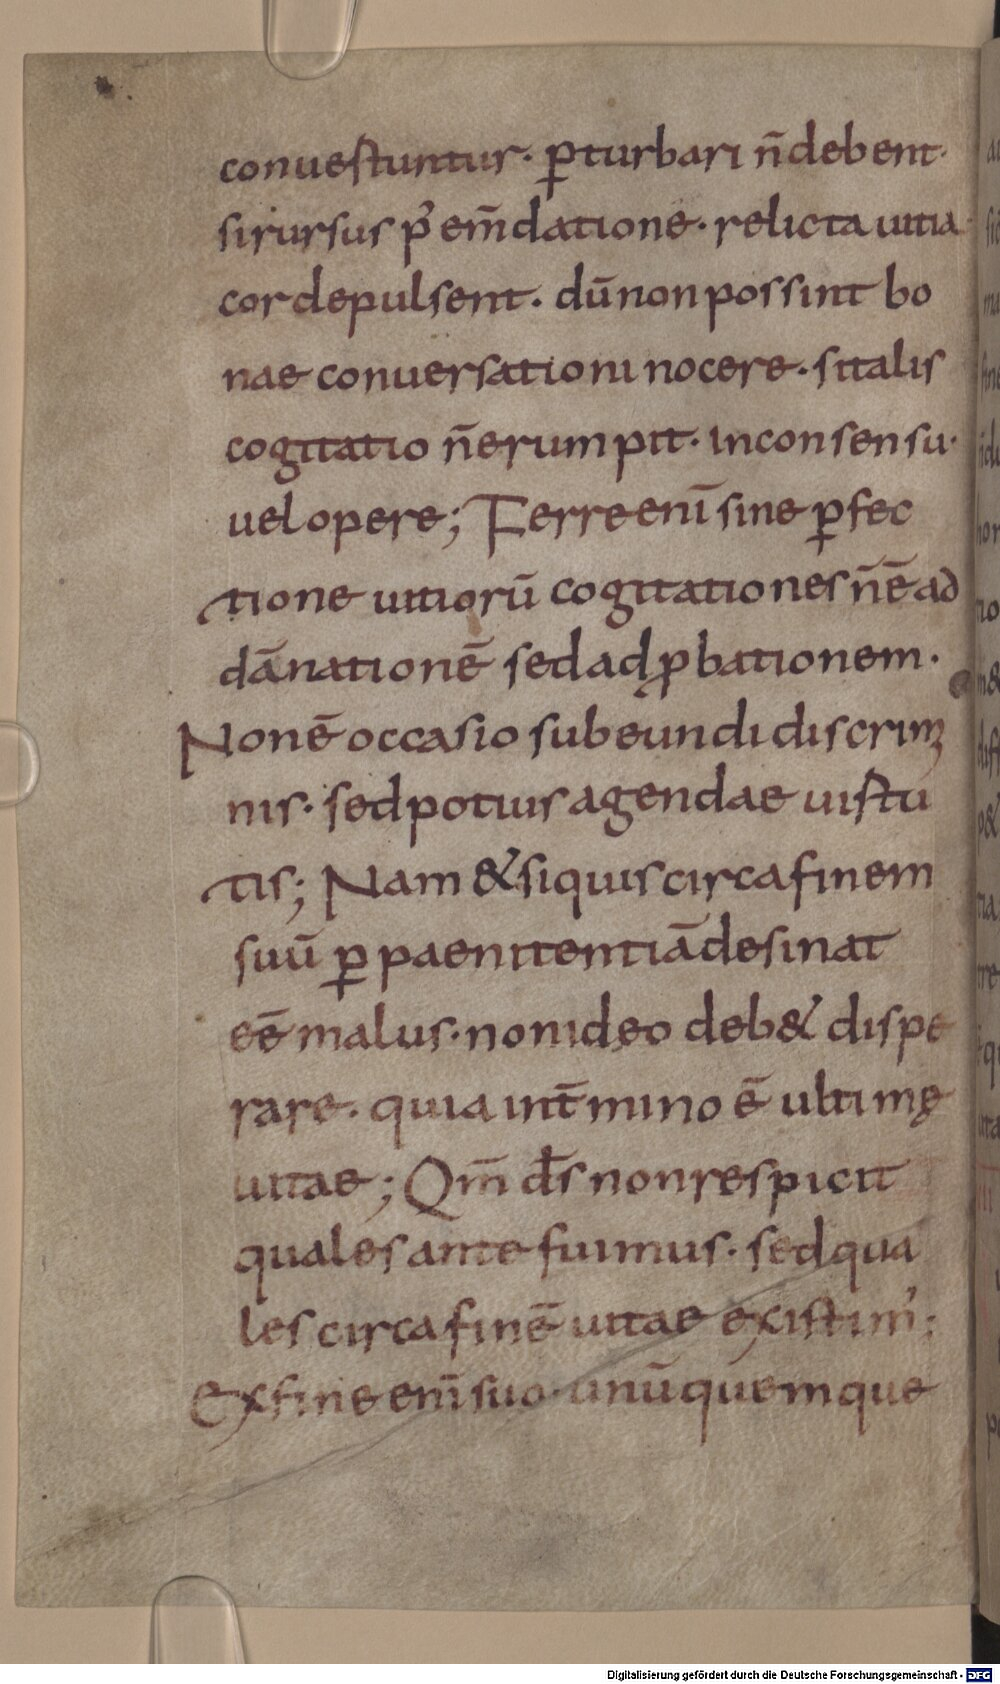 conuertuntur· ꝑturbari n̄debent·
sirursus p᷒ em̄datione· relicta uitia
cordepulsent· dūnonpossint bo
nae conuersationi nocere· sitalis
cogitatio n̄erumpit· inconsensu·
uelopere; Ferreenī sine ꝑfec
tione uitiorū cogitationes n̄ ē ad
dānationē sedadꝓbationem·
Nonē occasio subeundidiscrimi
nis· sedpotius agendae uirtu
tis; Nam &siquis circafinem
suū ꝑ paenitentiādesinat
eē malus· nonideo deb& dispe
rare· quia int̄mino ē ultimę
uitae; Qm̄ ds̄ nonrespicit
qualesante fuimus· sedqua
les circafinē uitae existim᷒;
Exfine enī suo· unūquemque
Digitalisierung gefördert durch die Deutsche Forschungsgemeinschaft - DFG